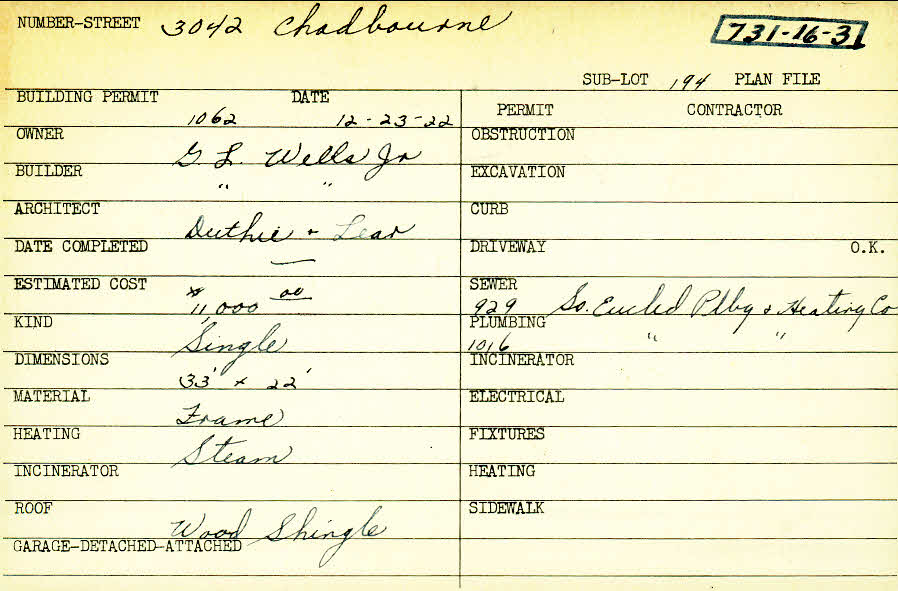 NUMBER-STREET 3042 Chadbourne 731-16-31
SUB-LOT 194 PLAN FILE
BUILDING PERMIT DATE
1062 12-23-22
PERMIT CONTRACTOR
OWNER
G. L. Wells Jr
BUILDER
" "
ARCHITECT
Duthie + Lear
DATE COMPLETED
—
ESTIMATED COST
$11,000 00
KIND
Single
DIMENSIONS
33' x 22'
MATERIAL
Frame
HEATING
Steam
INCINERATOR
ROOF
Wood Shingle
GARAGE-DETACHED-ATTACHED
OBSTRUCTION
EXCAVATION
CURB
DRIVEWAY O.K.
SEWER
929 So. Euclid Plbg & Heating Co
PLUMBING
1016 " "
INCINERATOR
ELECTRICAL
FIXTURES
HEATING
SIDEWALK